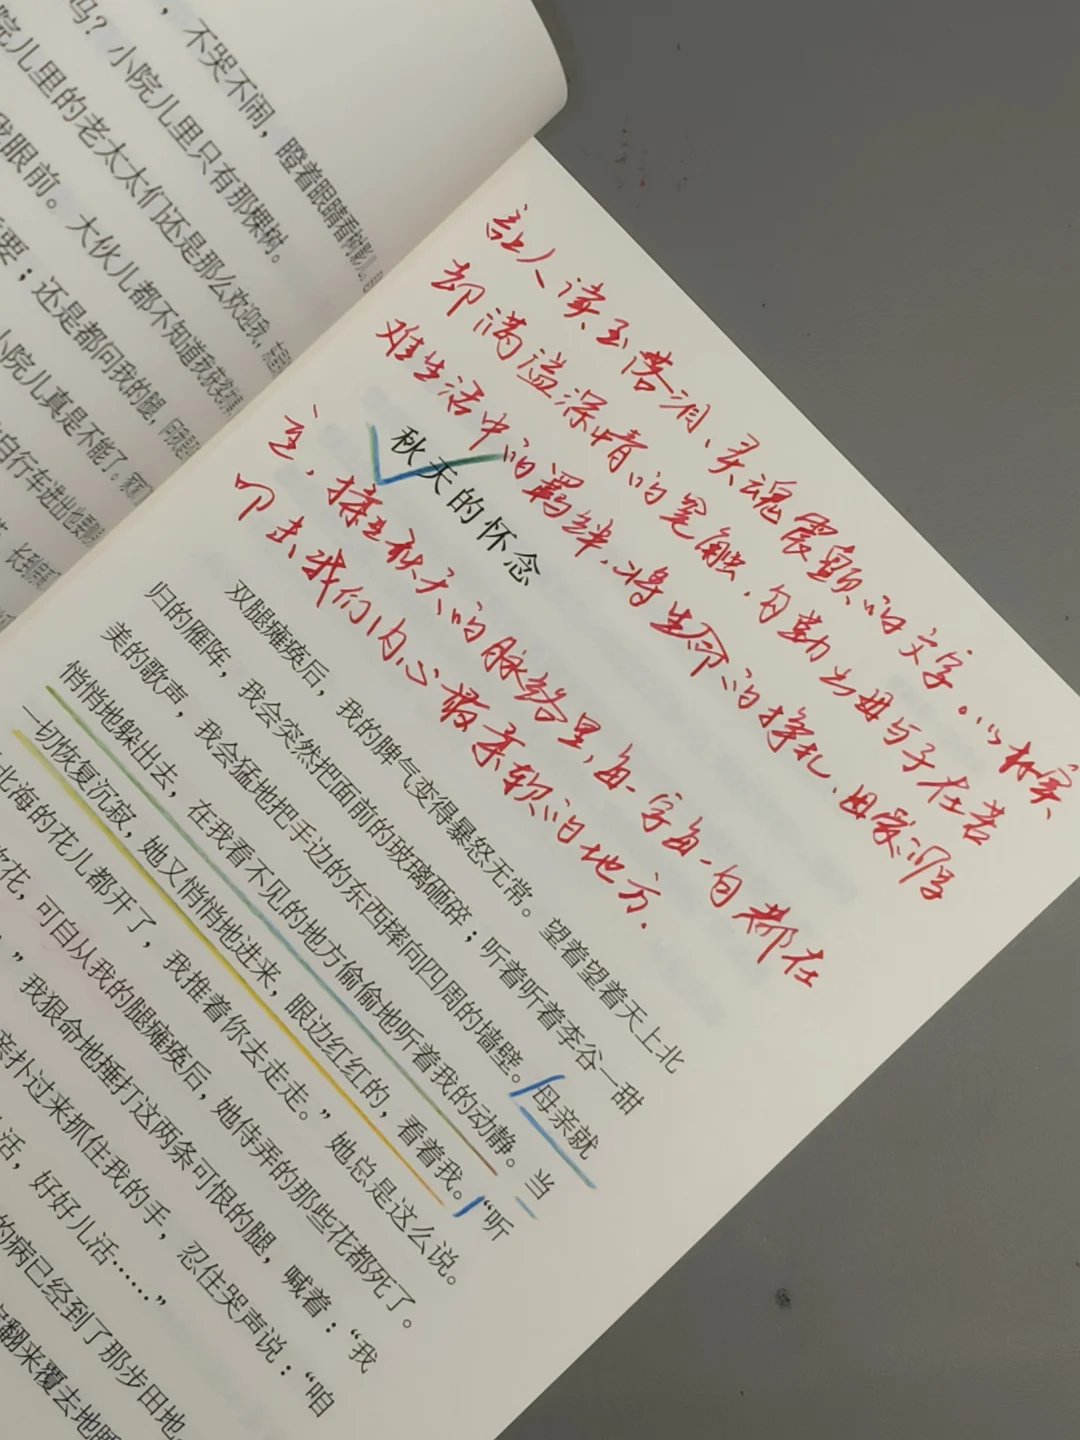 ，不哭不闹，瞪着眼睛看树影儿
吗？小院儿里只有那棵树。
院儿里的老太太们还是那么欢迎我，
我眼前。大伙儿都不知道我获奖
要；还是都问我的腿，
小院儿真是不能了。家家
自行车进出也要
让人读至落泪、灵魂震颤的文字。以朴实、
却满溢深情的笔触，勾勒出母与子在苦
难生活中的羁绊，将生命的挣扎、母爱
至，揉在秋天的脉络里，每一字每一句都在
叩击我们内心最柔软的地方。
秋天的怀念
双腿瘫痪后，我的脾气变得暴怒无常。望着望着天上北
归的雁阵，我会突然把面前的玻璃砸碎；听着听着李谷一甜
美的歌声，我会猛地把手边的东西摔向四周的墙壁。母亲就
悄悄地躲出去，在我看不见的地方偷偷地听着我的动静。当
一切恢复沉寂，她又悄悄地进来，眼边红红的，看着我。“听
北海的花儿都开了，我推着你去走走。”她总是这么说。
花，可自从我的腿瘫痪后，她侍弄的那些花都死了。
”我狠命地捶打这两条可恨的腿，喊着：“我
亲扑过来抓住我的手，忍住哭声说：“咱
活，好好儿活……”
的病已经到了那步田地。
翻来覆去地